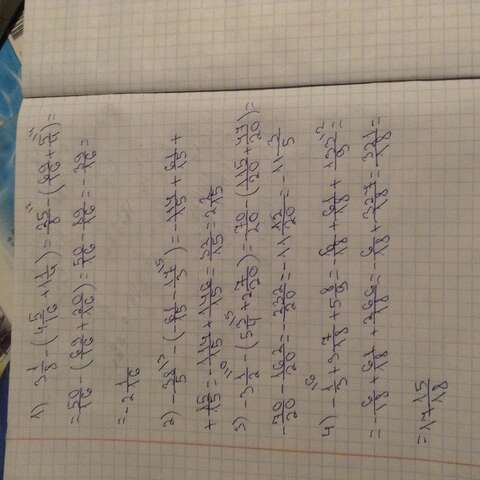 1) 3 1/8 - (4 5/16 + 1 1/4) = 25/8 - (69/16 + 5/4) =
= 50/16 - (69/16 + 20/16) = 50/16 - 89/16 = - 39/16 =
= - 2 1/16
2) - 38/5 - (- 61/15 - 17/3) = - 114/15 + 61/15 +
+ 85/15 = - 114/15 + 146/15 = 32/15 = 2 2/15
3) - 3 1/2 - (5 3/4 + 2 7/20) = - 70/20 - (115/20 + 47/20) =
- 70/20 - 162/20 = - 232/20 = - 11 12/20 = - 11 3/5
4) - 1/3 + 3 7/18 + 5 8/9 = - 6/18 + 61/18 + 133/9 =
= - 6/18 + 61/18 + 266/18 = - 6/18 + 327/18 = 321/18 =
= 17 15/18